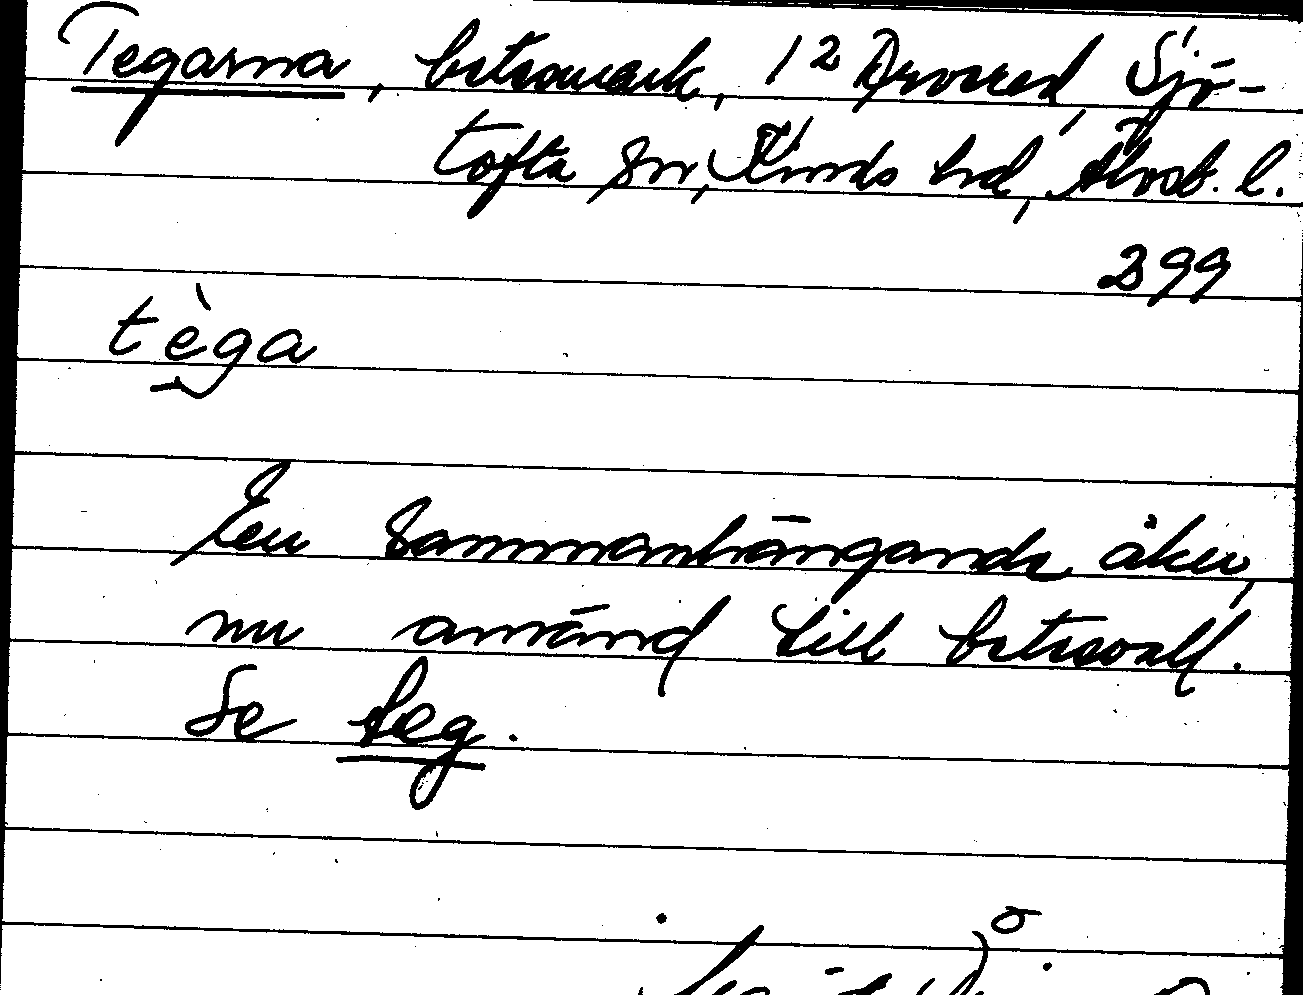 Tegarna, betesmark, 1² Drvared, Sjö-
tofta sn, Kinds hd, Älvsb. l.
299
tèga
En sammanhängande åker,
nu använd till betesvall.
Se teg.